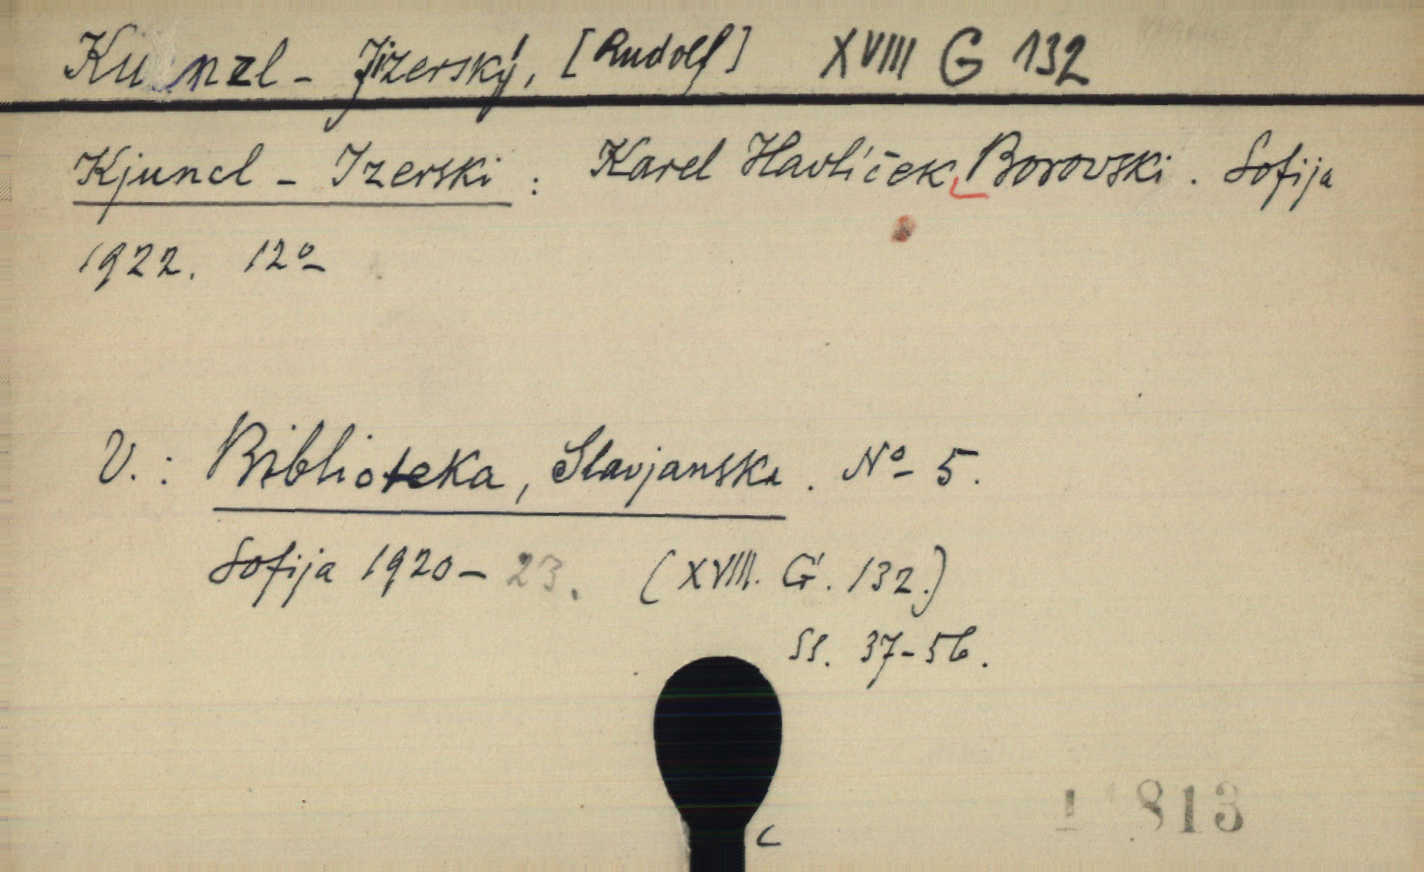 Kunzl - Jizerský, [Rudolf] XVIII G 132
Kjuncl - Izerski : Karel Havlíček Borovski. Sofija
1922. 12º
V.: Biblioteka, Slavjanska. Nº 5.
Sofija 1920-23. (XVIII. G. 132.)
SS. 37-56.
1 813